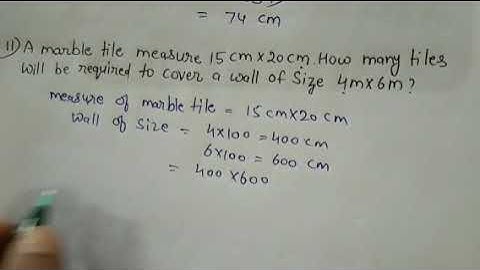 = 74 cm
11) A marble tile measure 15cm×20cm. How many tiles
will be required to cover a wall of size 4m×6m?
measure of marble tile = 15cm×20cm
wall of size = 4×100 = 400 cm
6×100 = 600 cm
= 400×600